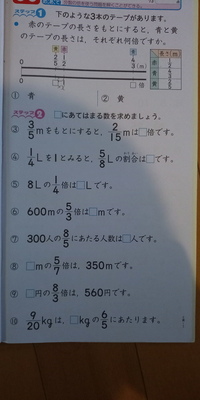 ステップ1 下のような3本のテープがあります。
● 赤のテープの長さをもとにすると、青と黄
のテープの長さは、それぞれ何倍ですか。
0
(m)
0
□倍
長さ(m)
赤
青
黄
① 青 ② 黄
ステップ2 □にあてはまる数を求めましょう。
③ 3/5mをもとにすると、2/15mは□倍です。
④ 1/4Lを1とみると、5/8Lの割合は□です。
⑤ 8Lの1/4倍は□Lです。
⑥ 600mの5/3倍は□mです。
⑦ 300人の8/5にあたる人数は□人です。
⑧ □mの5/7倍は、350mです。
⑨ □円の8/3倍は、560円です。
⑩ 9/20kgは、□kgの6/5にあたります。